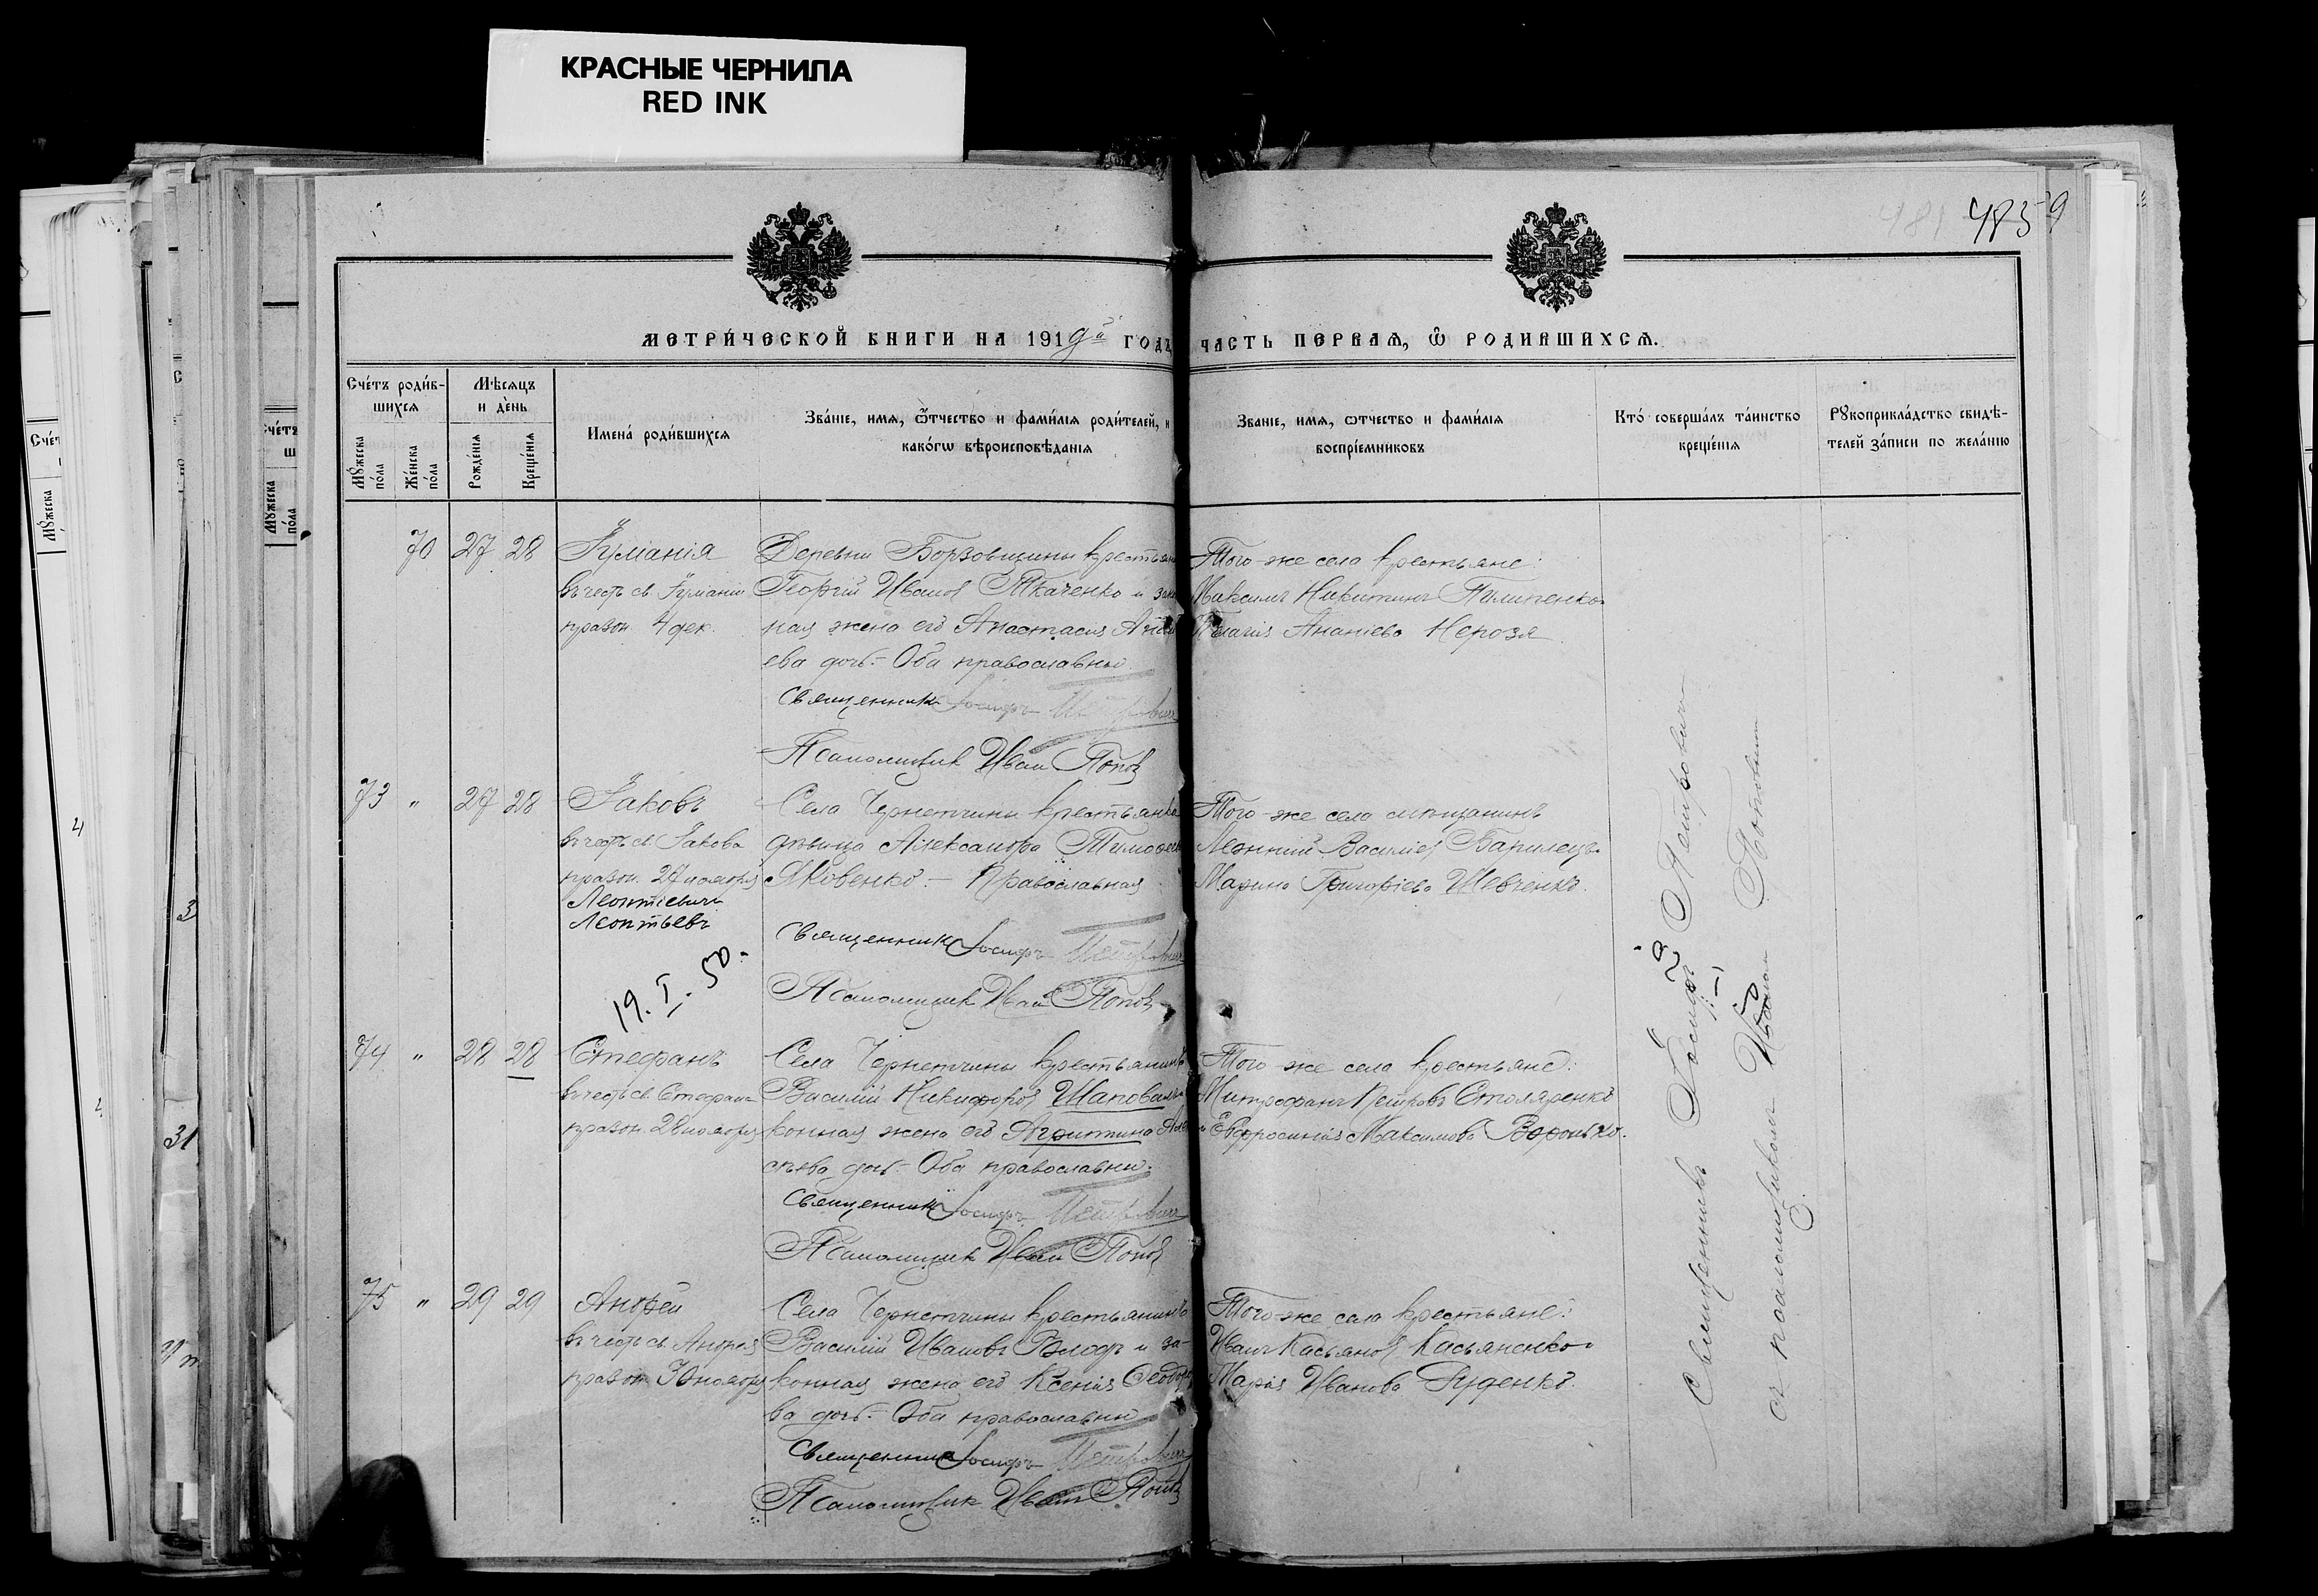 КРАСНЫЕ ЧЕРНИЛА
RED INK
481 4859
МЕТРИ́ЧЕСКОЙ КНИГИ НА 1919й ГОДЪ ЧАСТЬ ПЕРВАѦ, Ѿ РОДИВШИХСѦ.
Сче́тъ роди́вшихсѧ
Мꙋ́жеска по́ла
Же́нска по́ла
Мѣ́сѧцъ и де́нь
Рожде́нїѧ
Креще́нїѧ
Имена́ роди́вшихсѧ
Зва́нїе, имѧ, ѻ҆́тчество и фами́лїѧ роди́телей, и
како́гѡ вѣроисповѣ́данїѧ
Зва́нїе, имѧ, ѻтчество и фами́лїѧ
воспрїе́мниковъ
Кто́ соверша́лъ та́инство
креще́нїѧ
Рꙋкоприкла́дство свидѣ́-
телей за́писи по жела́нїю
70 27 28 Іуліанія
въ честь св. Іуліаніи
праздн. 4 дек.
Деревни Борзовщины крестьянинъ
Георгій Иванов Ткаченко и закон
ная жена его Анастасия
ева дочь.- Оба православны.
Священникъ Іосифъ Петрович
Псаломщик Иван Попов
Того-же села крестьяне:
Максимъ Никитинъ Пилипенко
Пелагия Ананіева Нерозя
73 " 27 28 Іаковъ
въ честь св. Іакова
праздн. 27 ноября
Леонтіевичъ
Леонтьевъ
19. I. 50.
Села Чернетчины крестьянка
дѣвица Александра Тимофеева
Яковенко.- Православная
Священник Іосифъ Петрович
Псаломщик Иван Попов
Того-же села мѣщанинъ
Леонтий Василіев Барилецъ
Марина Григоріева Шевченко.
74 " 28 28 Стефанъ
въ честь св. Стефана
праздн. 28 ноября
Села Чернетчины крестьянинъ
Василий Никифоров Шаповалъ
конная жена его Агриппина
сѣева дочь.- Оба православны.
Священник Іосифъ Петрович
Псаломщик Иван Попов
Того-же села крестьяне:
Митрофанъ Петровъ Столяренко
Евфросиния Максимова Воронько.
75 " 29 29 Андрей
въ честь св. Андрея
праздн. 30 ноября
Села Чернетчины крестьянинъ
Василий Ивановъ и за-
конная жена его Ксения Феодоро
ва дочь.- Оба православны
Священник Іосифъ Петрович
Псаломщик Иван Попов
Того-же села крестьяне:
Иванъ Касьянов Касьяненко
Мария Иванова Руденко.
Священникъ Іосифъ Петрович
съ псаломщиком Иваном Поповым